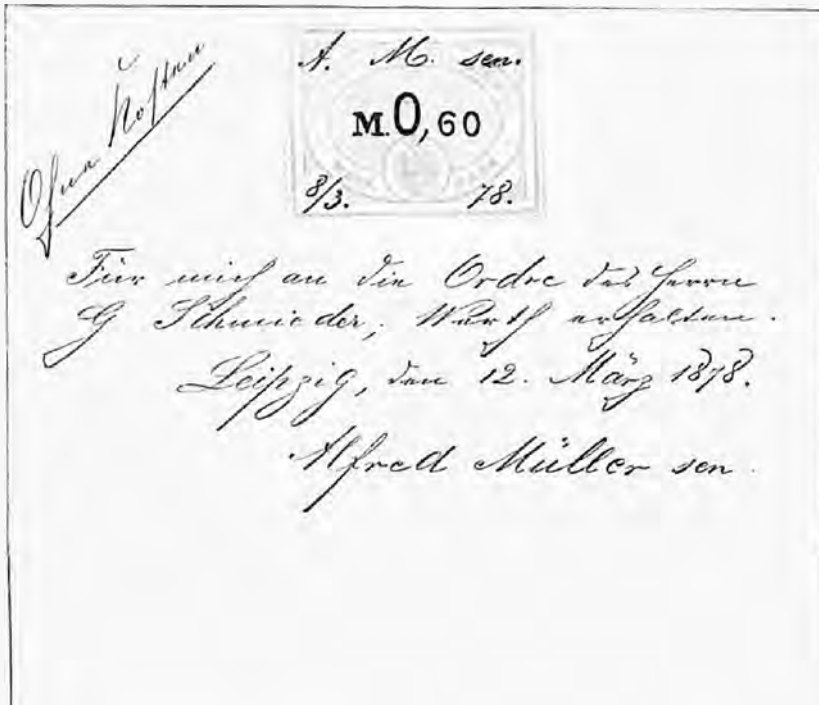 Ohne Kosten
A. M. sen.
M. 0,60
8/3. 78.
Für mich an die Ordre des Herrn
G Schmieder, Werth erhalten.
Leipzig, den 12. März 1878.
Alfred Müller sen.